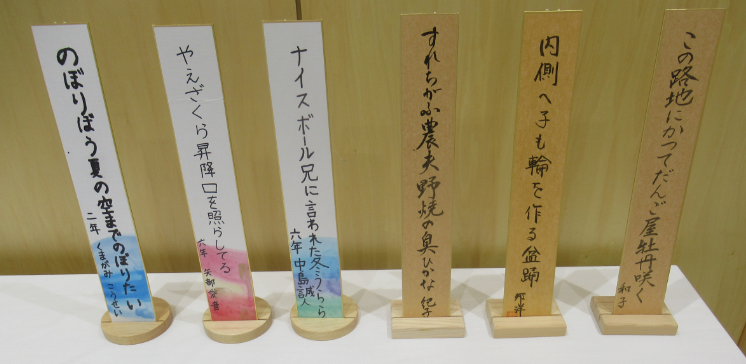 この路地にかつてだんご屋牡丹咲く
和子
内側へ子も輪を作る盆踊
すれちがふ農夫野焼の臭ひかな
紀子
ナイスボール兄に言われた冬うらら
六年 中島
やえざくら昇降口を照らしてる
六年 矢部
のぼりぼう夏の空までのぼりたい
二年 くまがみ こうせい